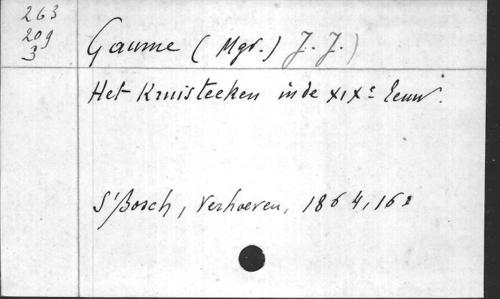 263
209
3
Gaume (Mgr.) J. J.)
Het Kruisteeken in de XIXe Eeuw.
S'Bosch, Verhoeven, 1864, 16º